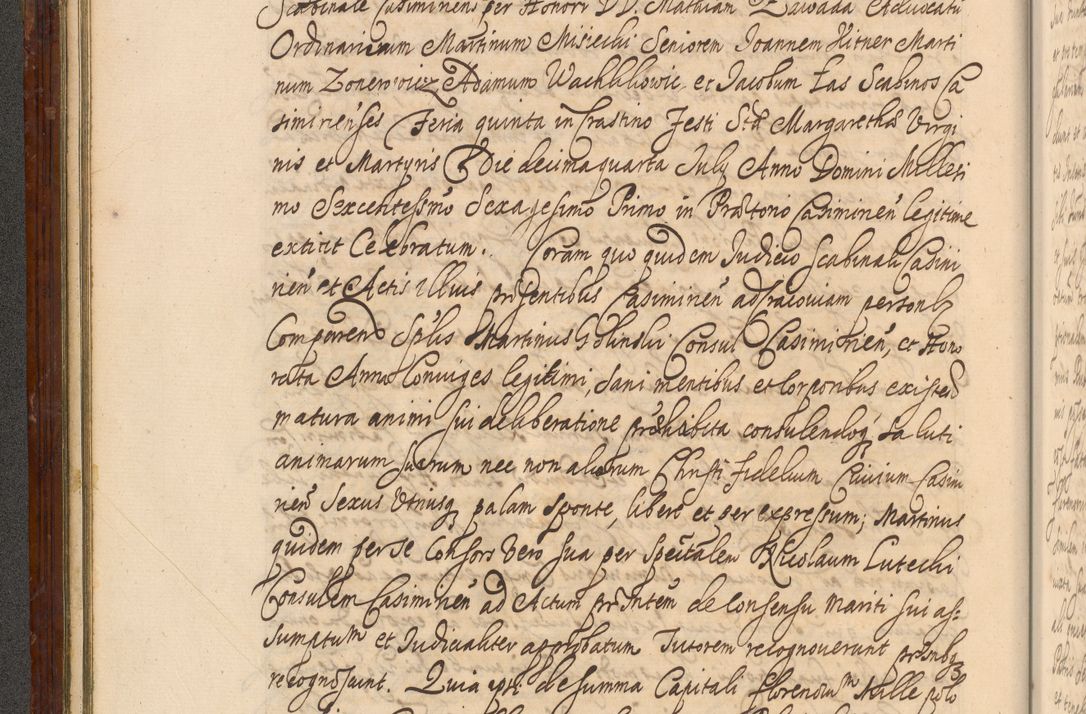 Scabinale Casimiriens per Honor DD. Mathiam Zawada Advocatū
Ordinarium Martinum Misiecki Seniorem Joannem Hitner Marti
num Zonerowicz Adamum Wachlilowic et Jacobum Las Scabinos Ca
simirienses Feria quinta in Crastino Festi Stæ Margarethæ Virgi
nis et Martyris Die decima quarta July Anno Domini Millesi
mo Sexcentessmo Sexagesimo Primo in Prætorio Casimirien̄ legitime
extitit Celebratum. Coram quo quidem Judicio Scabinali Casimi
rien̄ et Actis Illius præsentibus Casimirien̄ ad Cracoviam person̄lr
Comparen̄ Splis Martinus Golinski Consul Casimirien̄, et Hono
rata Anna Coniuges legitimi, sani mentibus et Corporibus existen̄
matura animi sui deliberatione præhabita consulendoq, saluti
animarum suarum nec non aliorum Christi Fidelium Civium Casim
rien̄ Sexus Utriusq palam sponte, libere et per expressum; Martinus
quidem per se Consors Vero sua per Spectalem Nicolaum Lutecki
Consulem Casimirien̄ ad Actum præsntem de Consensu Mariti sui as-
sumptum et Judicialiter approbatum Tutorem recognoverunt præsnbq
recognoscunt. Quia ipsi de summa Capitali florenorum Mille polo